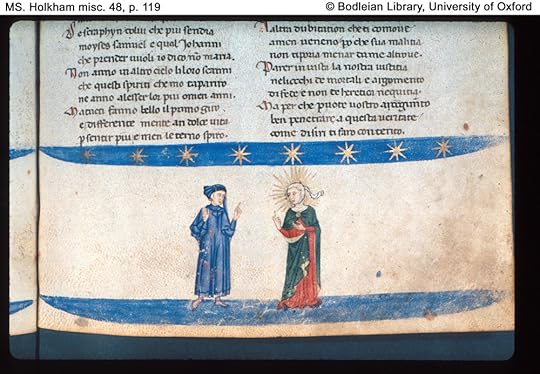 MS. Holkham misc. 48, p. 119
© Bodleian Library, University of Oxford
De seraphyn colui che piu sendia
moyses samuel e qual Iohanni
che prender vuoli io dico nõ maria.
Non anno in altro cielo li loro scanni
che questi spiriti che mo tapparito
ne anno a lesser lor piu omen anni.
Ma tucti fanno bello il primo giro
e differente mente an dolce vita
p sentir piu e men le terno spiro.
Laltra dubitation che ti comoue
amen ueneno po che sua malitia
non ti poria menar da me altroue.
Parer in iusta la nostra iustitia
neliocchi de mortali e argomento
di fede e non de heretica nequitia.
Ma per che puote uostro accorgimento
ben penetrare a questa veritate
come disiri ti faro contento.